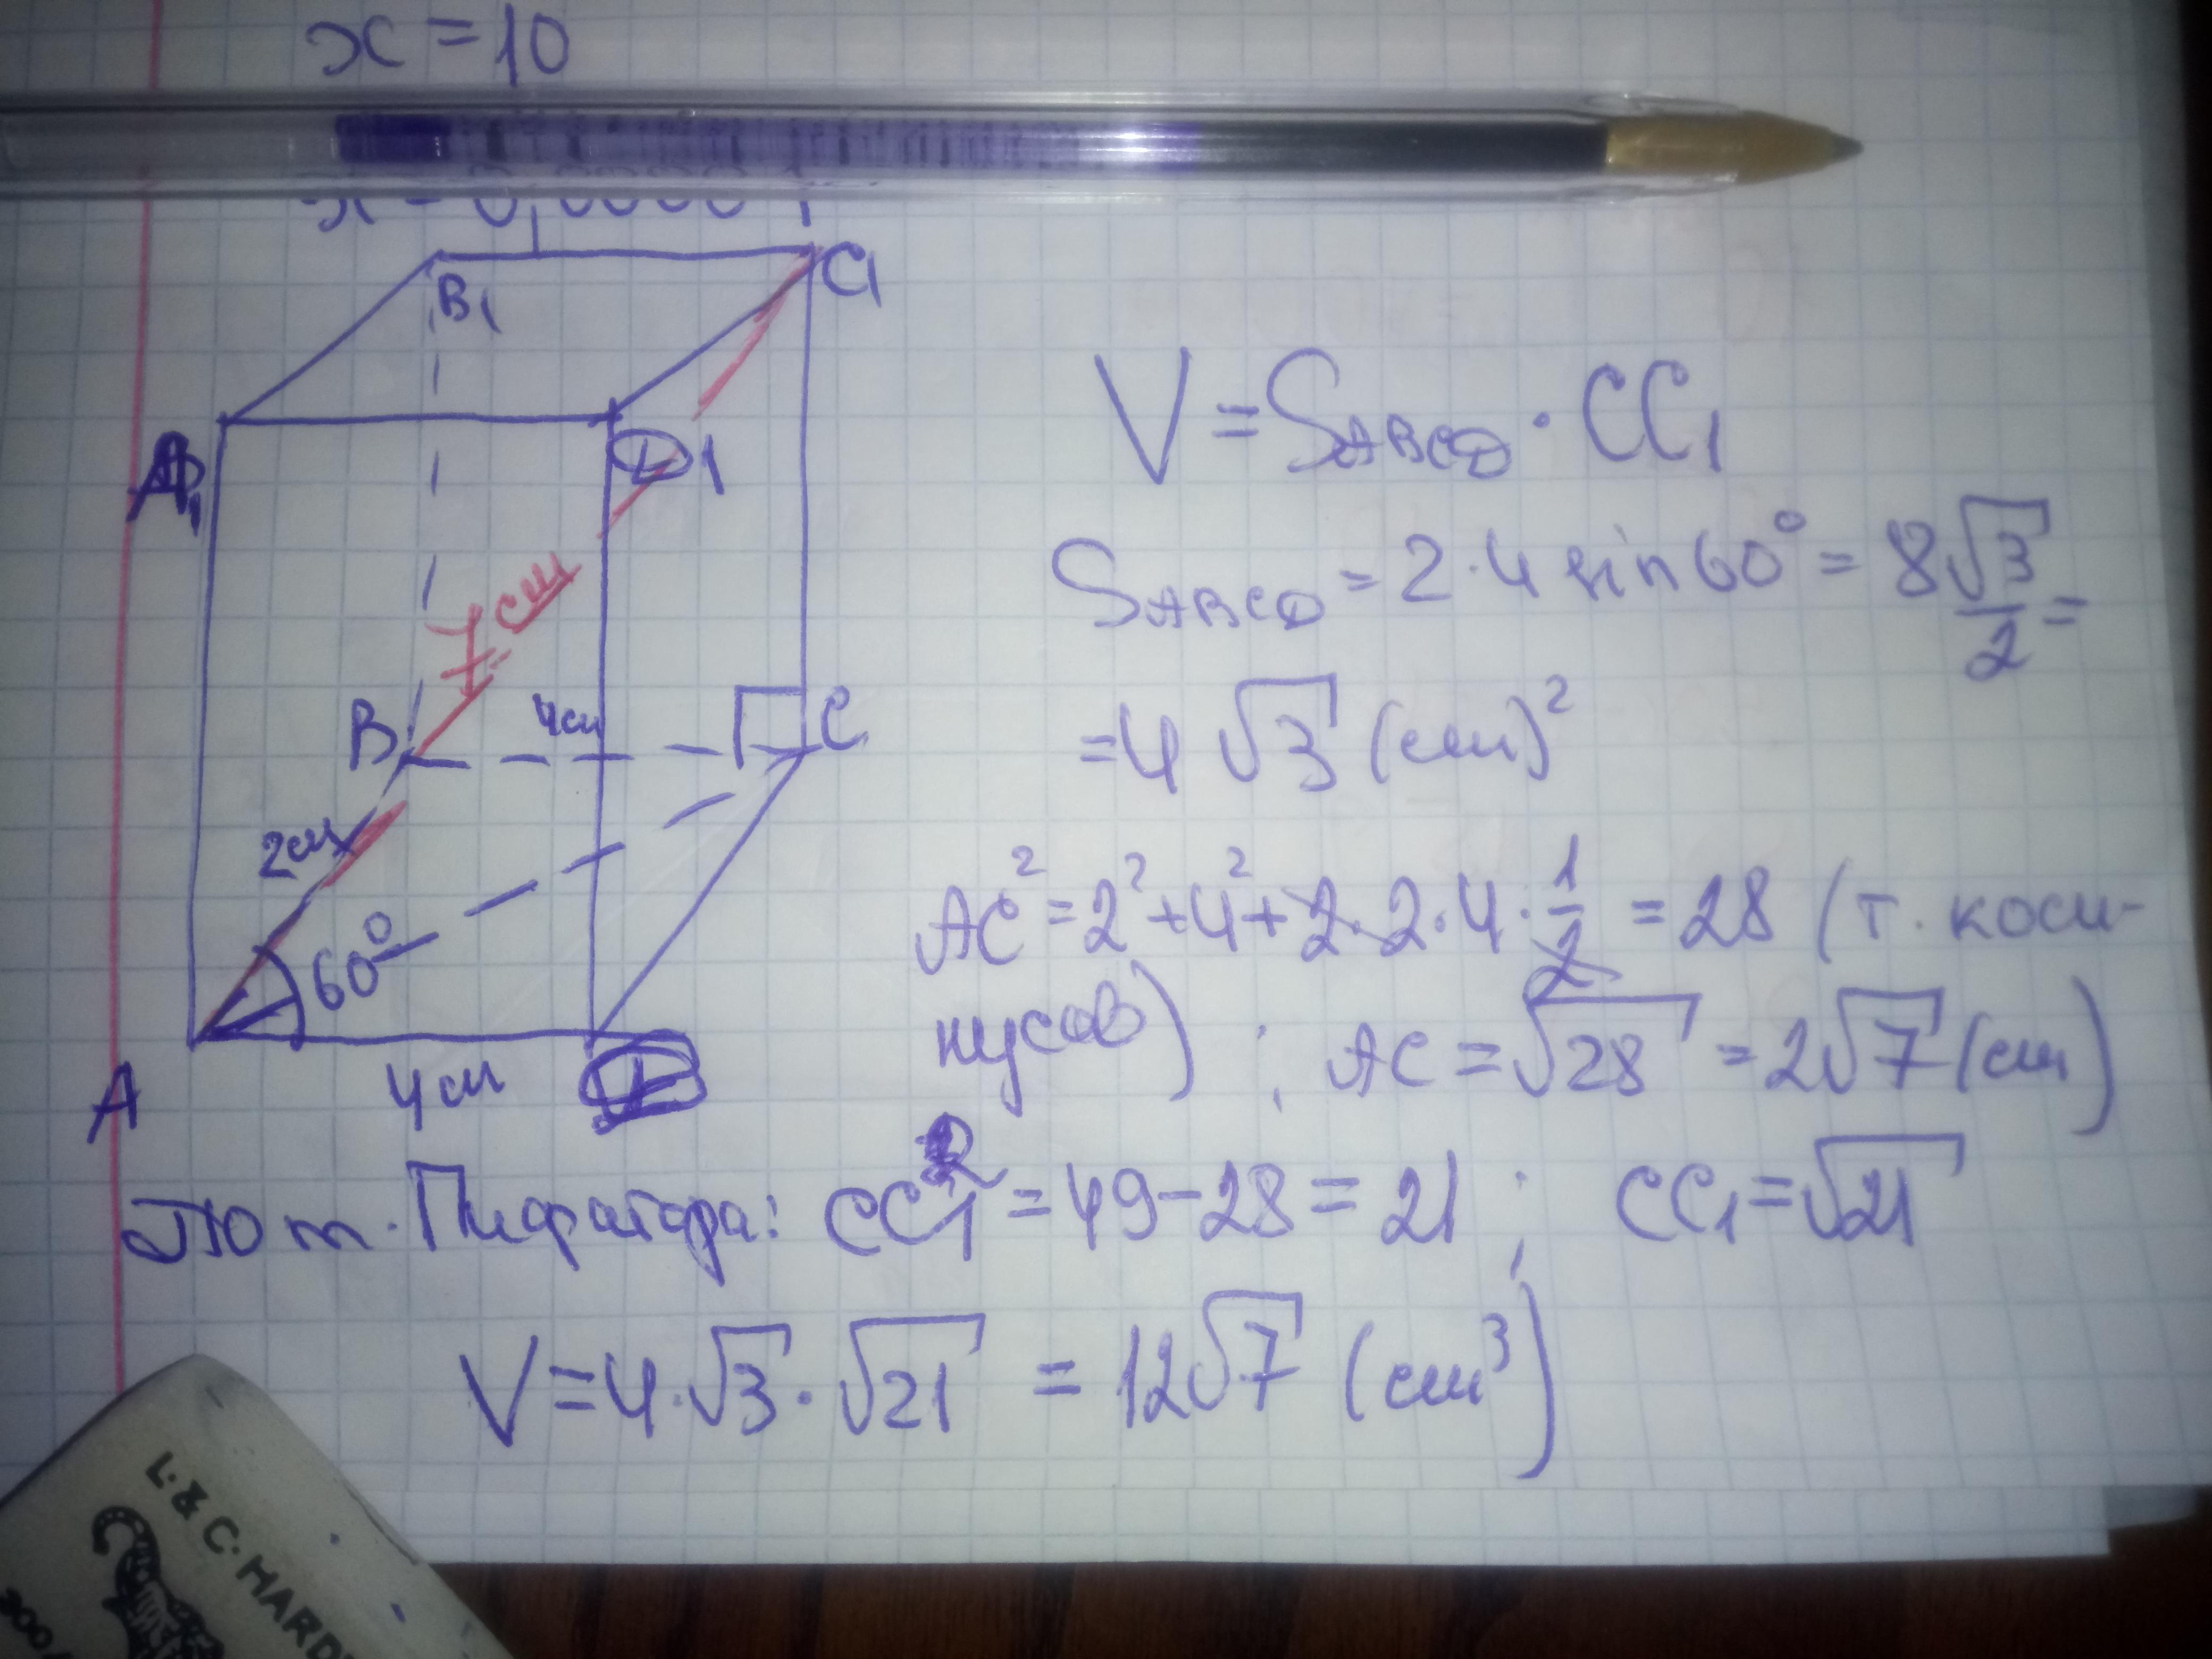 x = 10
B₁
C₁
A₁
D₁
7 см
B
4см
C
2см
60°
A
4 см
V = S_ABCD · CC₁
S_ABCD = 2·4 sin 60° = 8√3/2 =
= 4√3 (см)²
AC² = 2² + 4² + 2·2·4·1/2 = 28 (т. коси-
нусов) ; AC = √28 = 2√7 (см)
По т. Пифагора: CC₁² = 49 - 28 = 21 ; CC₁ = √21
V = 4·√3·√21 = 12√7 (см³)
L. & C. HARD